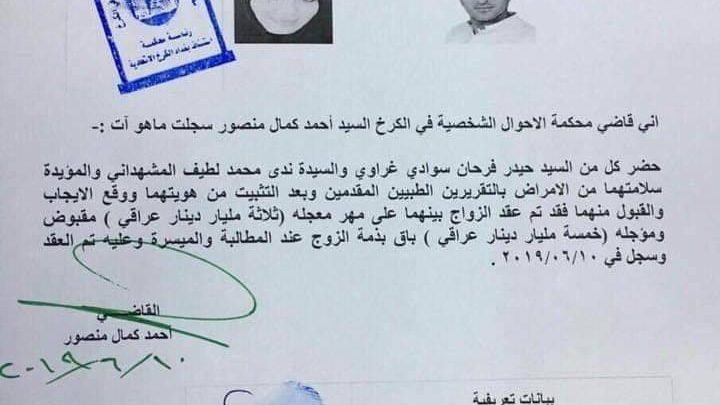 رئاسة محكمة
استئناف بغداد الكرخ الاتحادية
اني قاضي محكمة الاحوال الشخصية في الكرخ السيد أحمد كمال منصور سجلت ماهو آت :-
حضر كل من السيد حيدر فرحان سوادي غراوي والسيدة ندى محمد لطيف المشهداني والمؤيدة
سلامتهما من الامراض بالتقريرين الطبيين المقدمين وبعد التثبت من هويتهما ووقع الايجاب
والقبول منهما فقد تم عقد الزواج بينهما على مهر معجله (ثلاثة مليار دينار عراقي ) مقبوض
ومؤجله (خمسة مليار دينار عراقي ) باق بذمة الزوج عند المطالبة والميسرة وعليه تم العقد
وسجل في ٢٠١٩/٠٦/١٠ .
القاضي
أحمد كمال منصور
٢٠١٩/٦/١٠
بيانات تعريفية